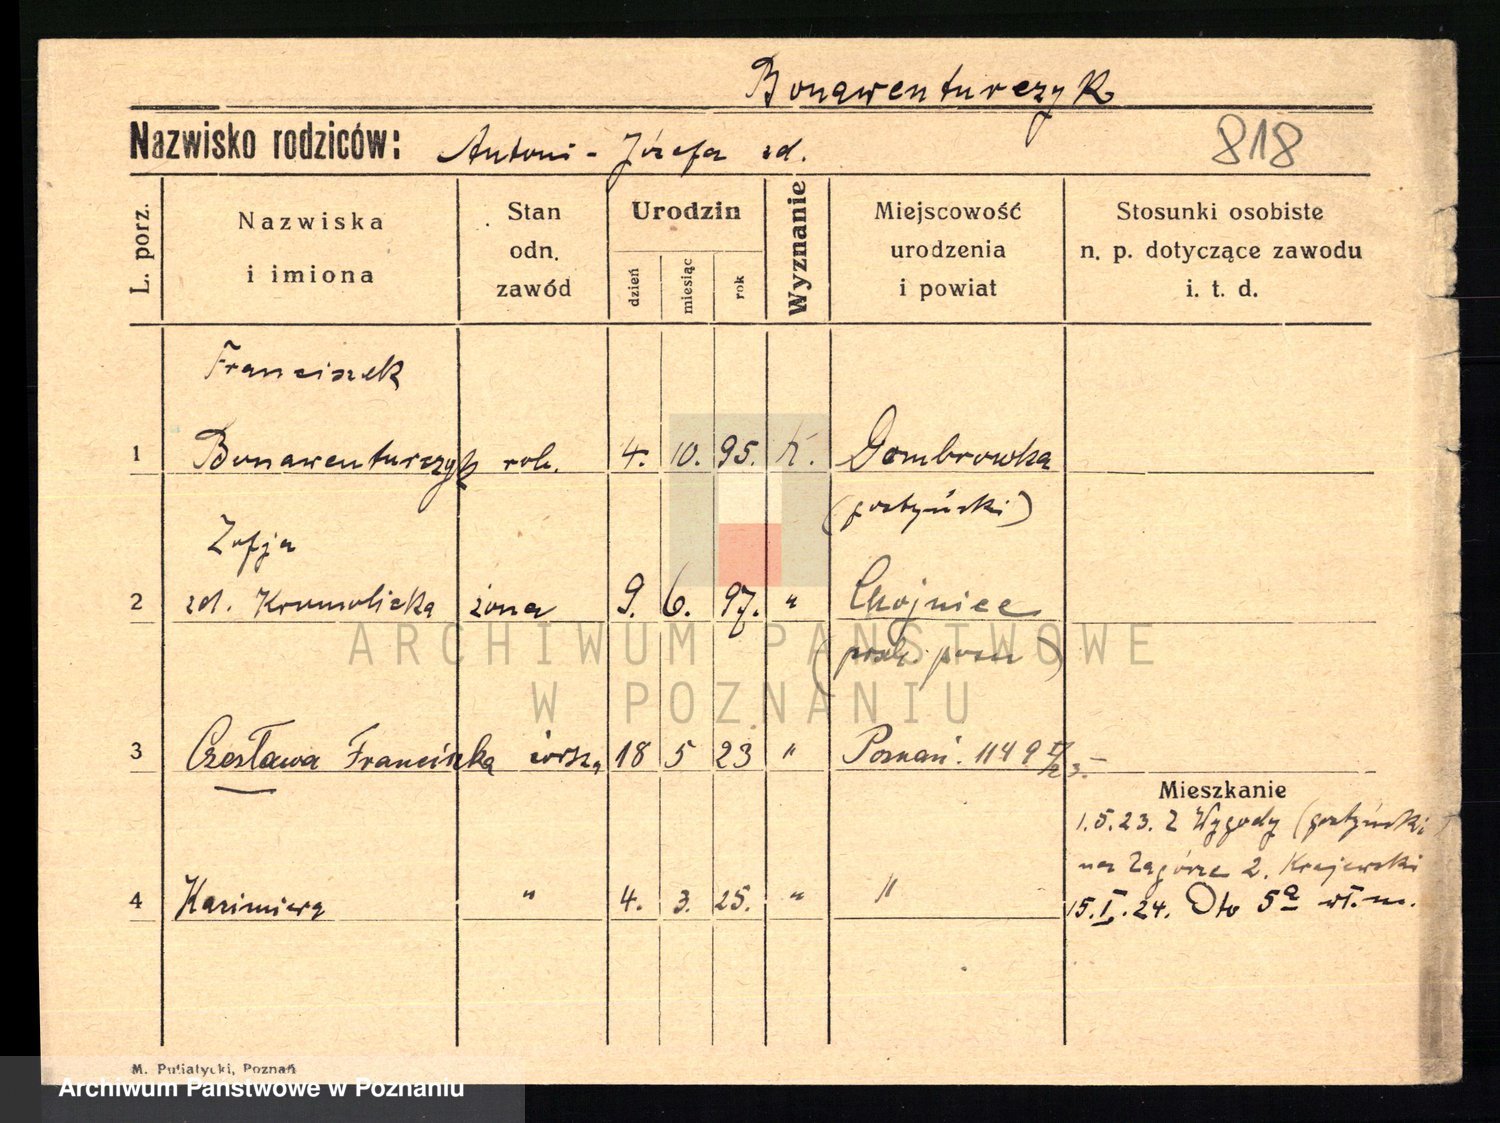 Bonawenturczyk
Nazwisko rodziców: Antoni - Józefa zd.
818
L. porz.
Nazwiska
i imiona
Stan
odn.
zawód
Urodzin
dzień
miesiąc
rok
Wyznanie
Miejscowość
urodzenia
i powiat
Stosunki osobiste
n. p. dotyczące zawodu
i. t. d.
Franciszek
1 Bonawenturczyk rob. 4. 10. 95. k. Dombrowka
(gostyński)
Zofja
2 zd. Kromolicka żona 9. 6. 97. " Chojnice
3 Czesława Franciszka córka 18 5 23 " Poznań. 1149
Mieszkanie
1.5.23. Z Wygody (gostyński
na Zagórze 2. Krajewski
4 Kazimiera " 4. 3. 25. " "
15.I.24. Oto 5a wł. m.
M. Putiatycki, Poznań
ARCHIWUM PAŃSTWOWE
W POZNANIU
Archiwum Państwowe w Poznaniu